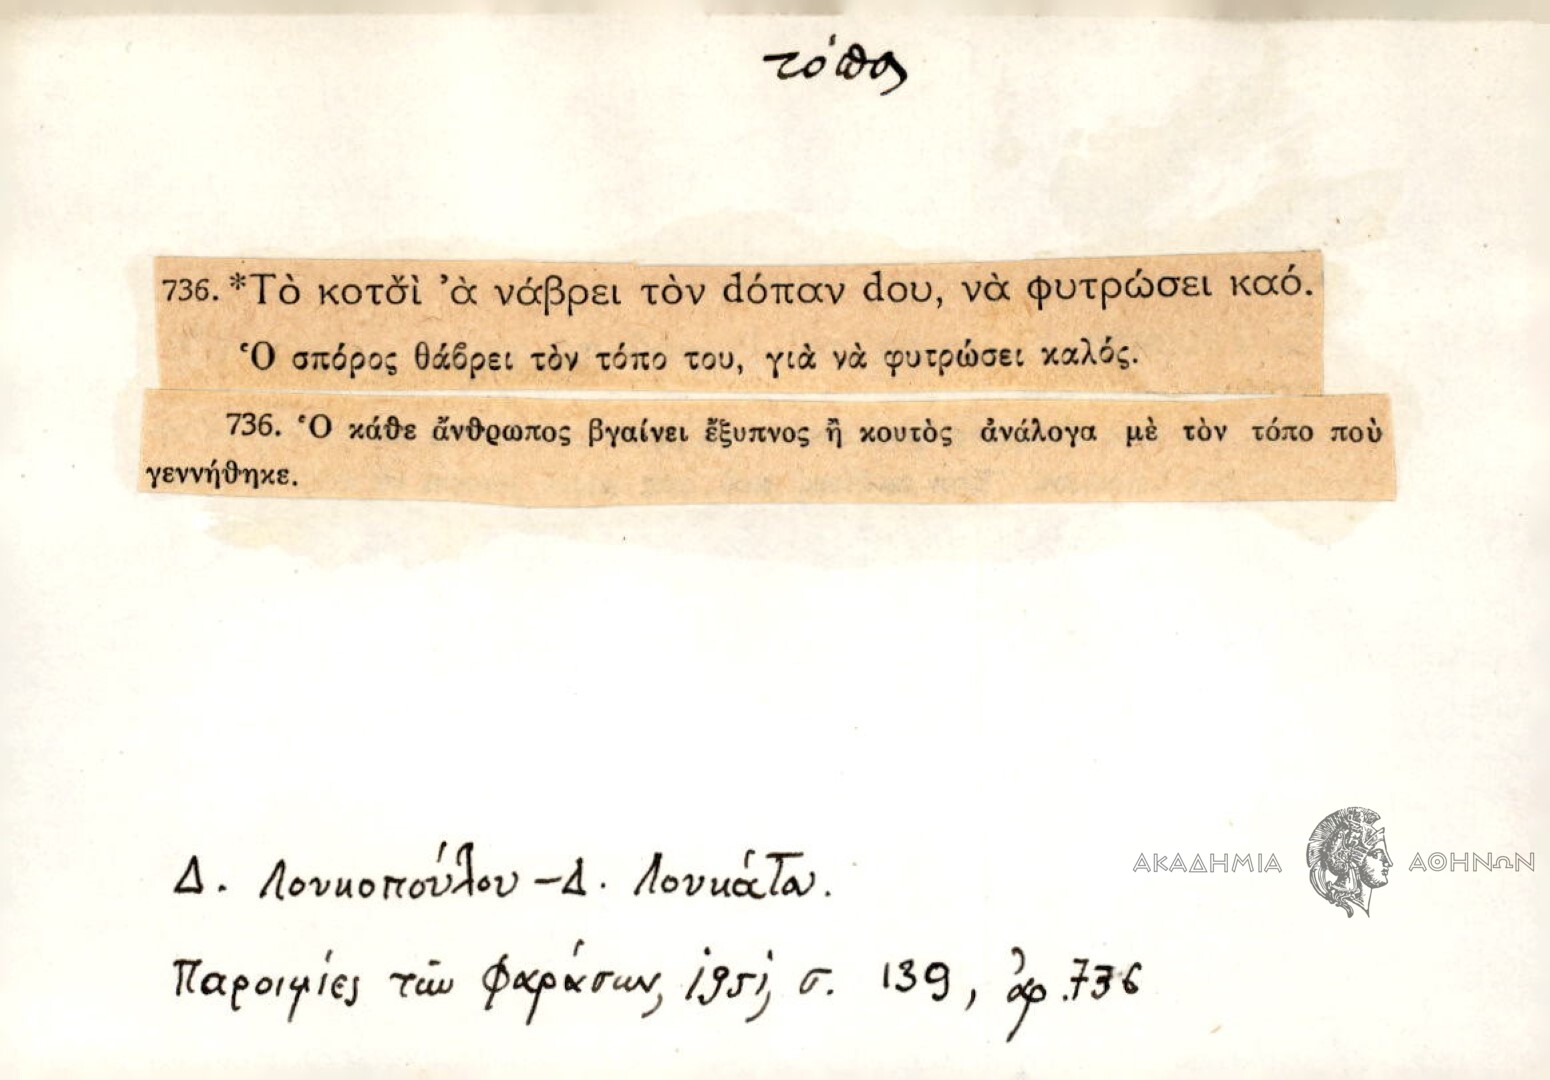 τόπος
736. *Τὸ κοτσ̌ὶ ’ὰ νάβρει τὸν dόπαν dου, νὰ φυτρώσει καό.
Ὁ σπόρος θάβρει τὸν τόπο του, γιὰ νὰ φυτρώσει καλός.
736. Ὁ κάθε ἄνθρωπος βγαίνει ἔξυπνος ἢ κουτὸς ἀνάλογα μὲ τὸν τόπο ποὺ
γεννήθηκε.
Δ. Λουκοπούλου – Δ. Λουκάτου.
Παροιμίες τῶν Φαράσων, 1951, σ. 139, ἀρ. 736
ΑΚΑΔΗΜΙΑ ΑΘΗΝΩΝ